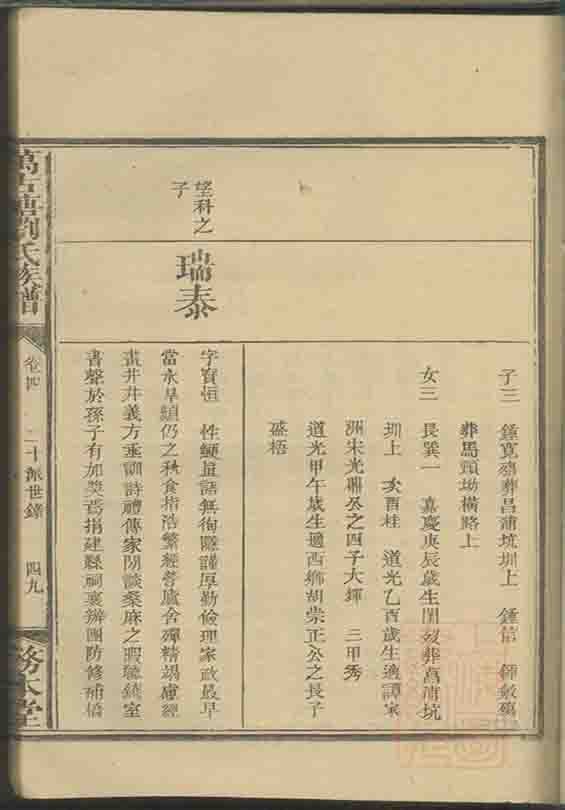 子三 鍾寛殤葬昌蒲坑圳上 鍾信 鍾敘殤
葬馬頸坳橫路上
女三 長巽一 嘉慶庚辰歲生閏歿葬菖蒲坑
圳上 次酉桂 道光乙酉歲生適譚家
洲宋光鼎公之四子大輝 三甲秀
道光甲午歲生適西鄉胡崇正公之長子
盛梧
望科之
子
瑞泰
字寶恒 性鯁直語無徇隱謹厚勤儉理家政最早
當水旱頻仍之秋食指浩繁經營廬舍殫精竭慮經
畫井井義方垂訓詩禮傳家閒談桑麻之暇聽鏡室
書聲於孫子有加獎焉捐建縣祠襄辦團防修補橋
萬古塘劉氏族譜
卷四
二十派世錄
四九
務本堂